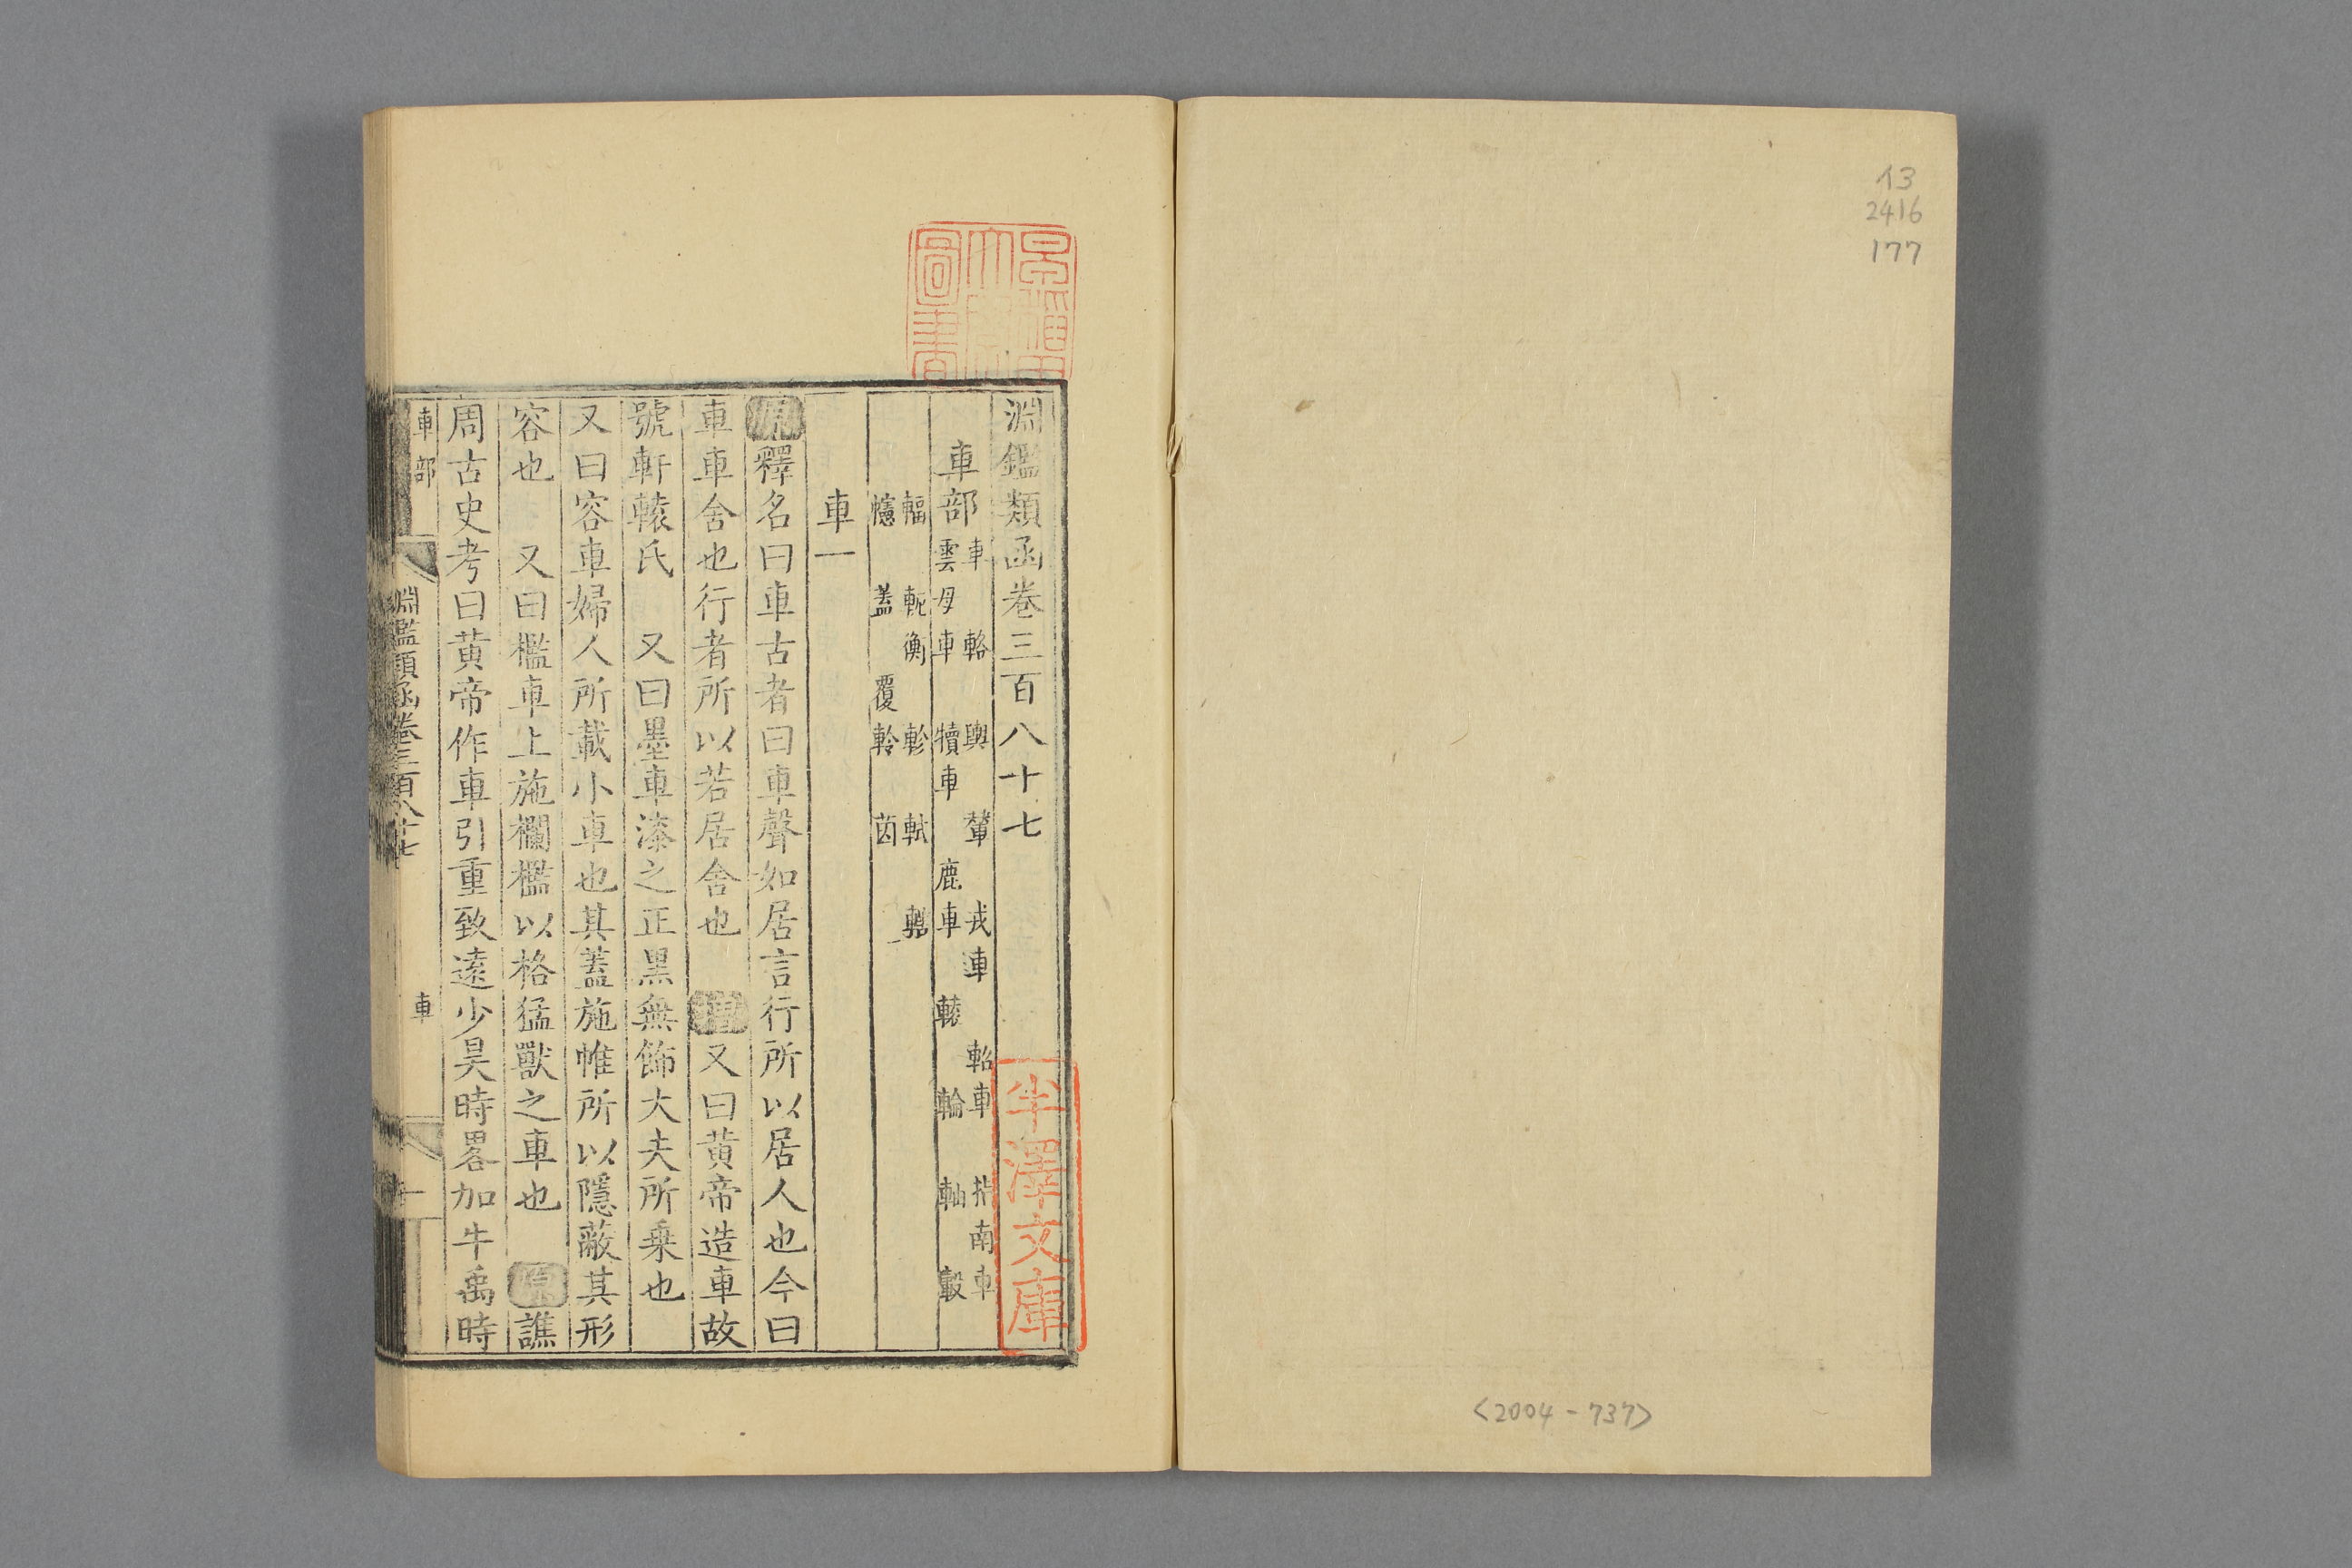 イ3
2416
177
<2004-737>
淵鑑類函卷三百八十七
車部
車 輅 輿 輦 戎連 軺車 指南車
雲母車 犢車 鹿車 轅 輪 軸 轂
輻 軛衡 軫 軾
幰 蓋 覆軨 茵
車一
原釋名曰車古者曰車聲如居言行所以居人也今曰
車車舍也行者所以若居舍也 增又曰黃帝造車故
號軒轅氏 又曰墨車漆之正黑無飾大夫所乗也
又曰容車婦人所載小車也其蓋施帷所以隱蔽其形
容也 又曰檻車上施欄檻以格猛獸之車也 原譙
周古史考曰黃帝作車引重致遠少昊時畧加牛禹時
車部
淵鑑類函卷三百八十七
車
一
早稲田大學圖書
半澤文庫